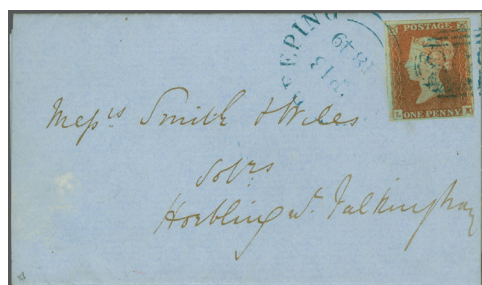 EEPING
1849
POSTAGE
ONE PENNY
Messrs Smith & Wiles
Solrs
Horbling nr. Falkingham